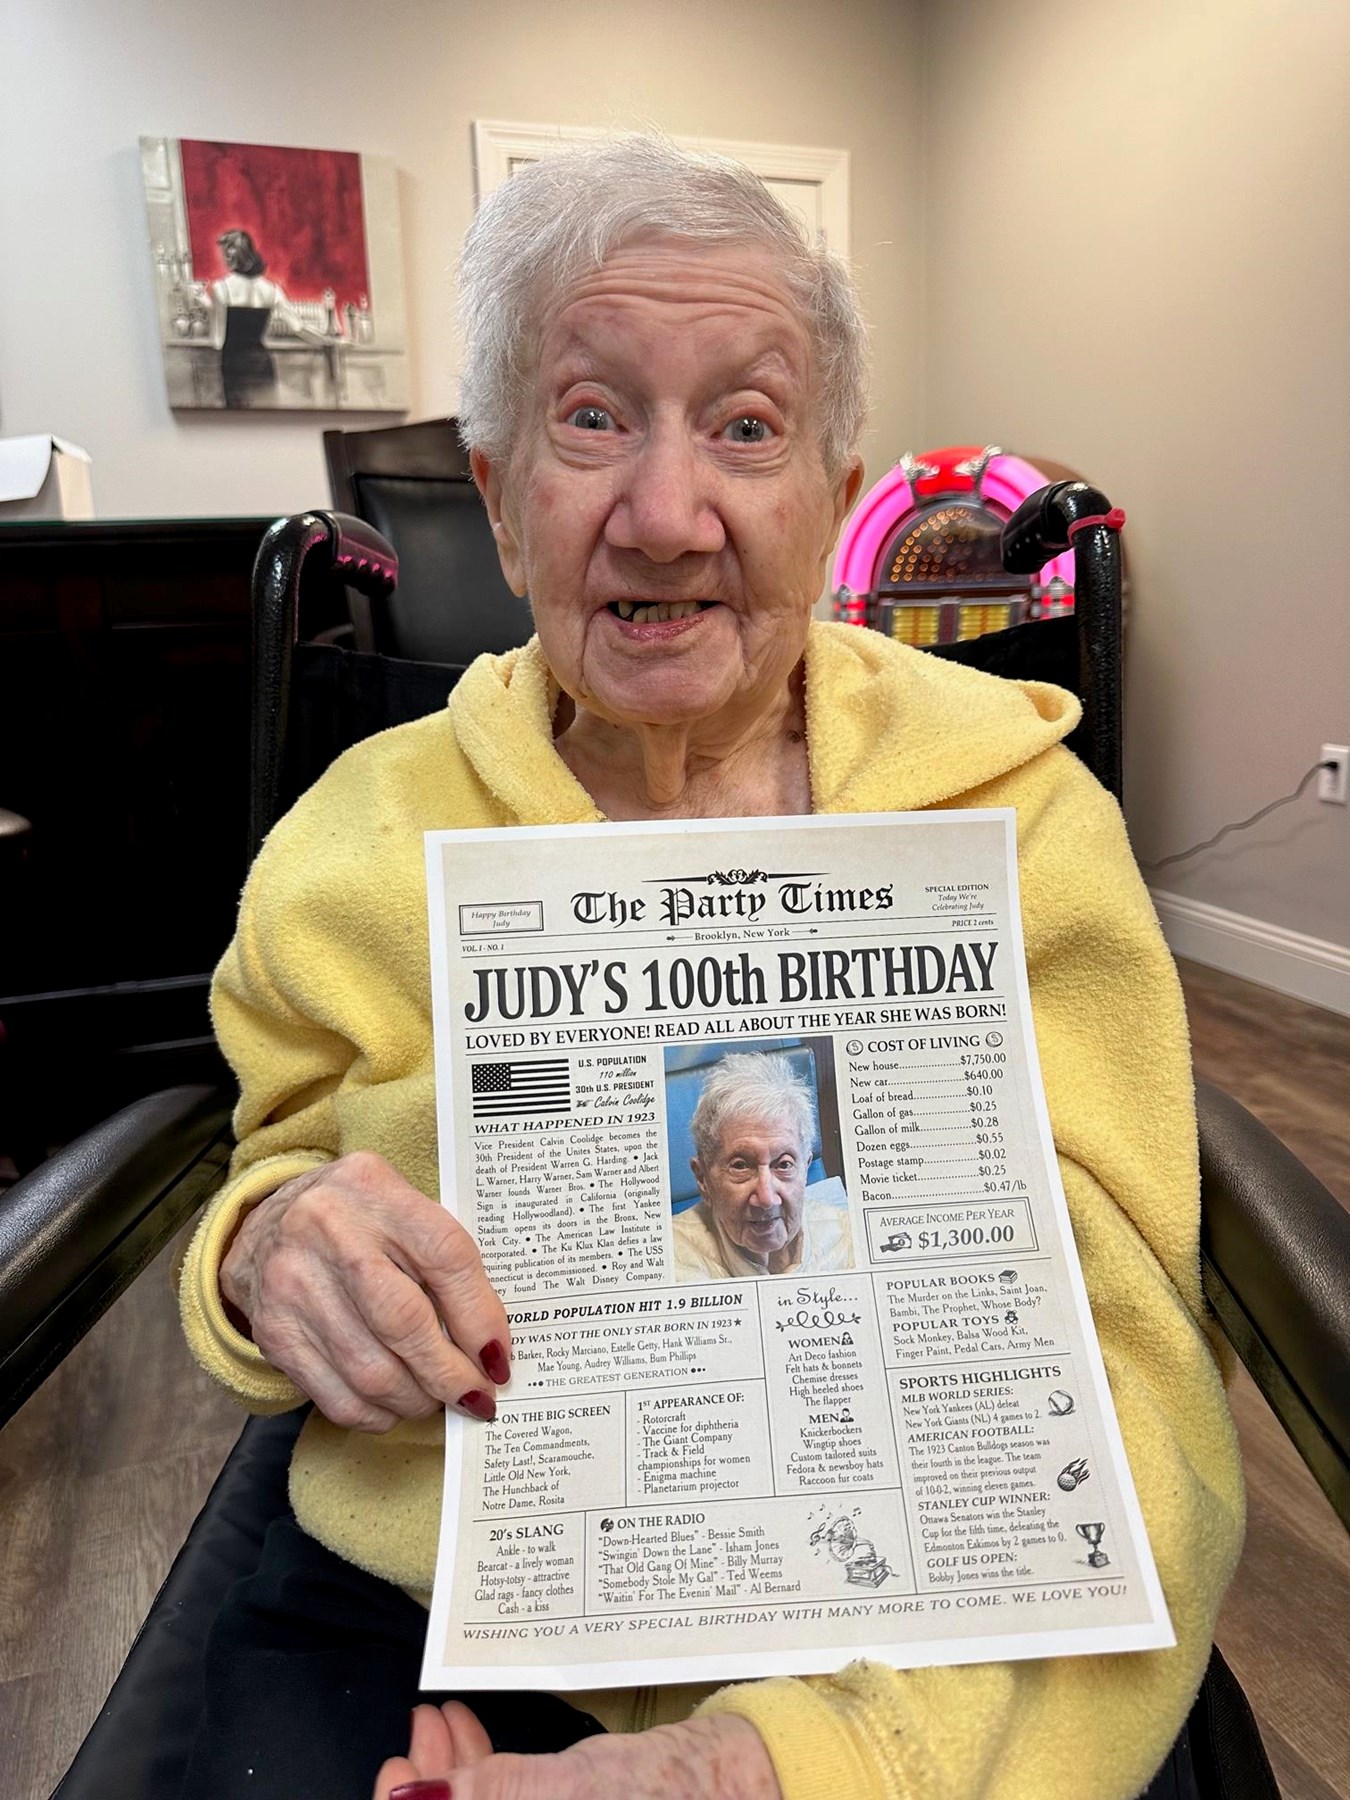 Happy Birthday
Judy
The Party Times
SPECIAL EDITION
Today We're
Celebrating Judy
VOL.1 - NO. 1
Brooklyn, New York
PRICE 2 cents
JUDY'S 100th BIRTHDAY
LOVED BY EVERYONE! READ ALL ABOUT THE YEAR SHE WAS BORN!
U.S. POPULATION
110 million
30th U.S. PRESIDENT
Calvin Coolidge
WHAT HAPPENED IN 1923
Vice President Calvin Coolidge becomes the
30th President of the Unites States, upon the
death of President Warren G. Harding. • Jack
L. Warner, Harry Warner, Sam Warner and Albert
Warner founds Warner Bros. • The Hollywood
Sign is inaugurated in California (originally
reading Hollywoodland). • The first Yankee
Stadium opens its doors in the Bronx, New
York City. • The American Law Institute is
ncorporated. • The Ku Klux Klan defies a law
equiring publication of its members. • The USS
nnecticut is decommissioned. • Roy and Walt
ney found The Walt Disney Company.
COST OF LIVING
New house....................$7,750.00
New car.......................$640.00
Loaf of bread..................$0.10
Gallon of gas..................$0.25
Gallon of milk.................$0.28
Dozen eggs....................$0.55
Postage stamp.................$0.02
Movie ticket...................$0.25
Bacon..........................$0.47/lb
AVERAGE INCOME PER YEAR
$1,300.00
WORLD POPULATION HIT 1.9 BILLION
DY WAS NOT THE ONLY STAR BORN IN 1923 ★
b Barker, Rocky Marciano, Estelle Getty, Hank Williams Sr.,
Mae Young, Audrey Williams, Bum Phillips
••• THE GREATEST GENERATION •••
in Style...
WOMEN
Art Deco fashion
Felt hats & bonnets
Chemise dresses
High heeled shoes
The flapper
MEN
Knickerbockers
Wingtip shoes
Custom tailored suits
Fedora & newsboy hats
Raccoon fur coats
POPULAR BOOKS
The Murder on the Links, Saint Joan,
Bambi, The Prophet, Whose Body?
POPULAR TOYS
Sock Monkey, Balsa Wood Kit,
Finger Paint, Pedal Cars, Army Men
ON THE BIG SCREEN
The Covered Wagon,
The Ten Commandments,
Safety Last!, Scaramouche,
Little Old New York,
The Hunchback of
Notre Dame, Rosita
1ST APPEARANCE OF:
- Rotorcraft
- Vaccine for diphtheria
- The Giant Company
- Track & Field
championships for women
- Enigma machine
- Planetarium projector
SPORTS HIGHLIGHTS
MLB WORLD SERIES:
New York Yankees (AL) defeat
New York Giants (NL) 4 games to 2.
AMERICAN FOOTBALL:
The 1923 Canton Bulldogs season was
their fourth in the league. The team
improved on their previous output
of 10-0-2, winning eleven games.
STANLEY CUP WINNER:
Ottawa Senators win the Stanley
Cup for the fifth time, defeating the
Edmonton Eskimos by 2 games to 0.
GOLF US OPEN:
Bobby Jones wins the title.
20's SLANG
Ankle - to walk
Bearcat - a lively woman
Hotsy-totsy - attractive
Glad rags - fancy clothes
Cash - a kiss
ON THE RADIO
"Down-Hearted Blues" - Bessie Smith
"Swingin' Down the Lane" - Isham Jones
"That Old Gang Of Mine" - Billy Murray
"Somebody Stole My Gal" - Ted Weems
"Waitin' For The Evenin' Mail" - Al Bernard
WISHING YOU A VERY SPECIAL BIRTHDAY WITH MANY MORE TO COME. WE LOVE YOU!